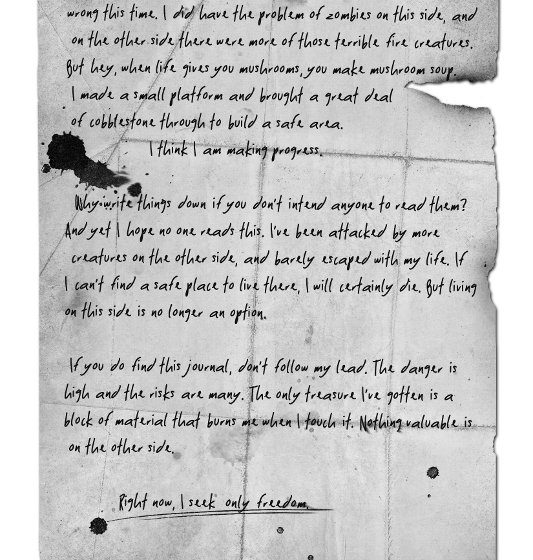 wrong this time. I did have the problem of zombies on this side, and
on the other side there were more of those terrible fire creatures.
But hey, when life gives you mushrooms, you make mushroom soup.
I made a small platform and brought a great deal
of cobblestone through to build a safe area.
I think I am making progress.
Why write things down if you don't intend anyone to read them?
And yet I hope no one reads this. I've been attacked by more
creatures on the other side, and barely escaped with my life. If
I can't find a safe place to live there, I will certainly die. But living
on this side is no longer an option.
If you do find this journal, don't follow my lead. The danger is
high and the risks are many. The only treasure I've gotten is a
block of material that burns me when I touch it. Nothing valuable is
on the other side.
Right now, I seek only freedom.